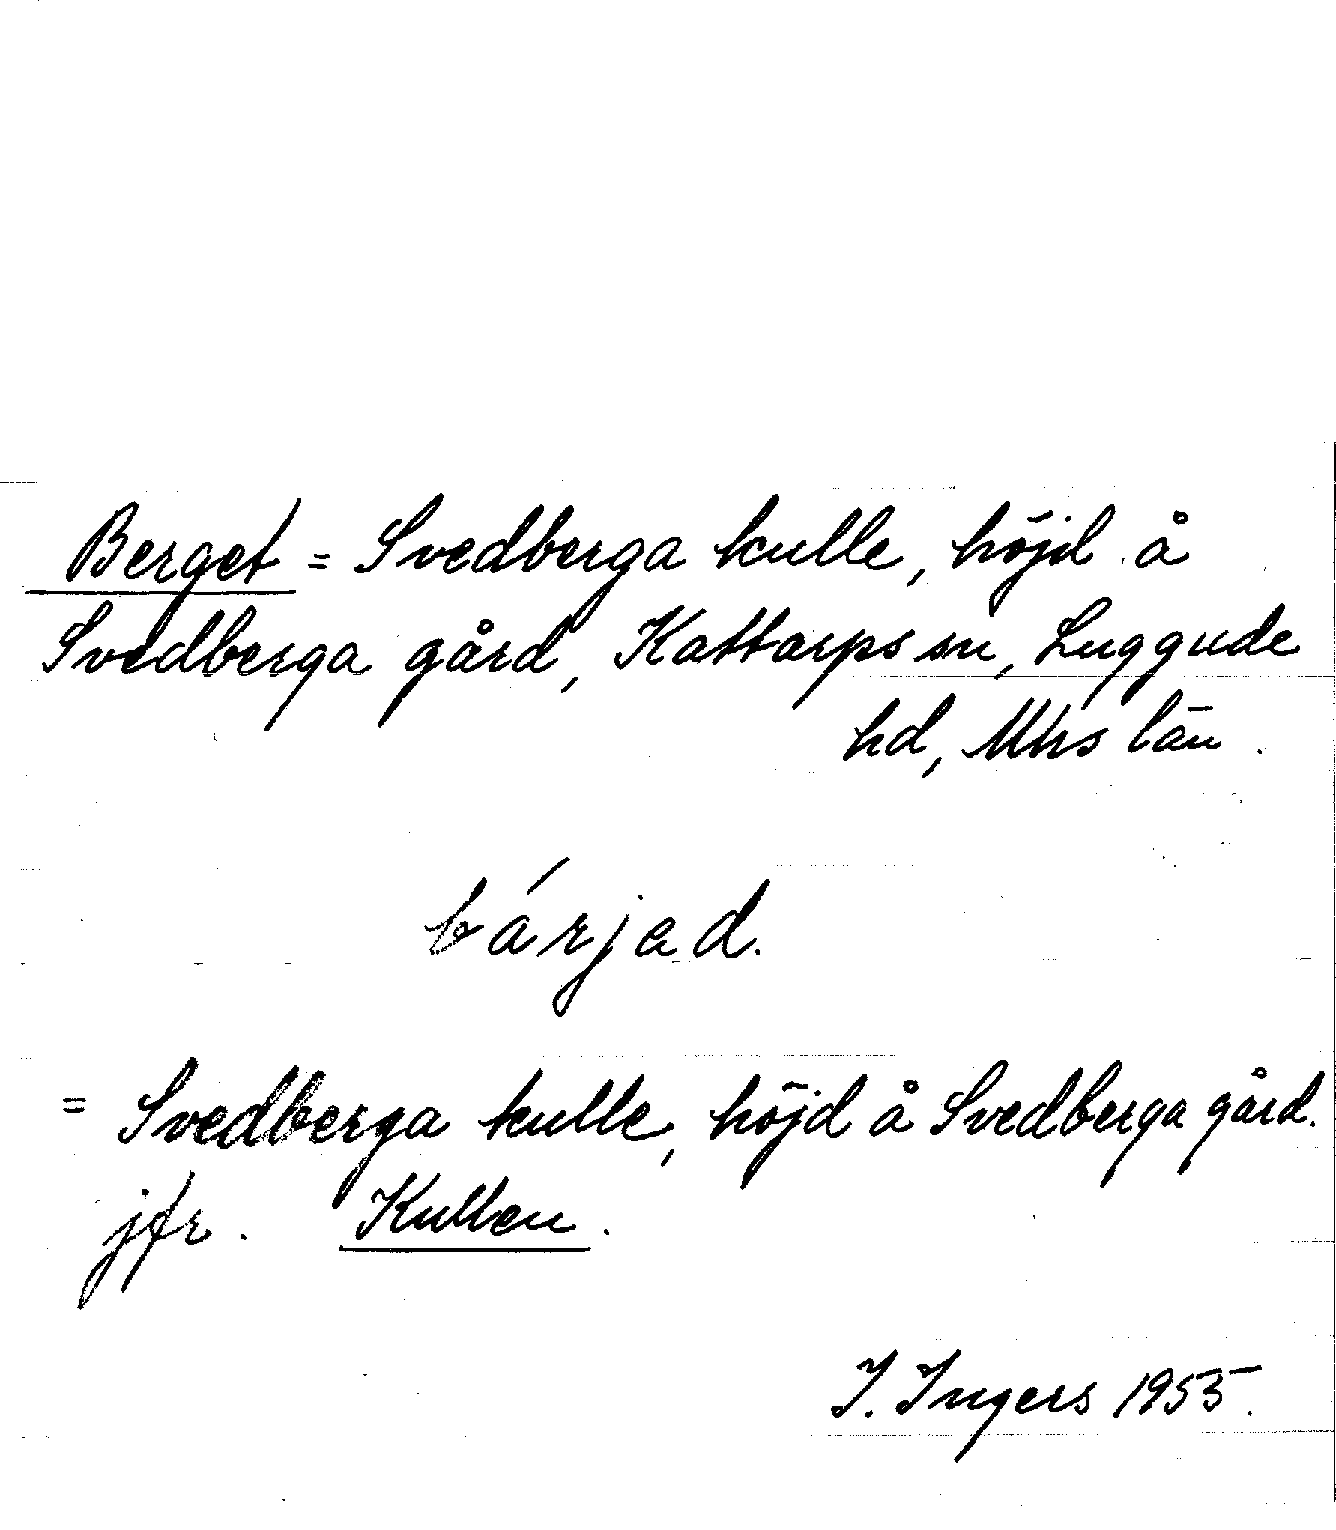 Berget = Svedberga kulle, höjd å
Svedberga gård, Kattarps sn, Luggude
hd, Mhs län.
bárjad.
= Svedberga kulle, höjd å Svedberga gård.
jfr. Kullen.
I. Ingers 1955.